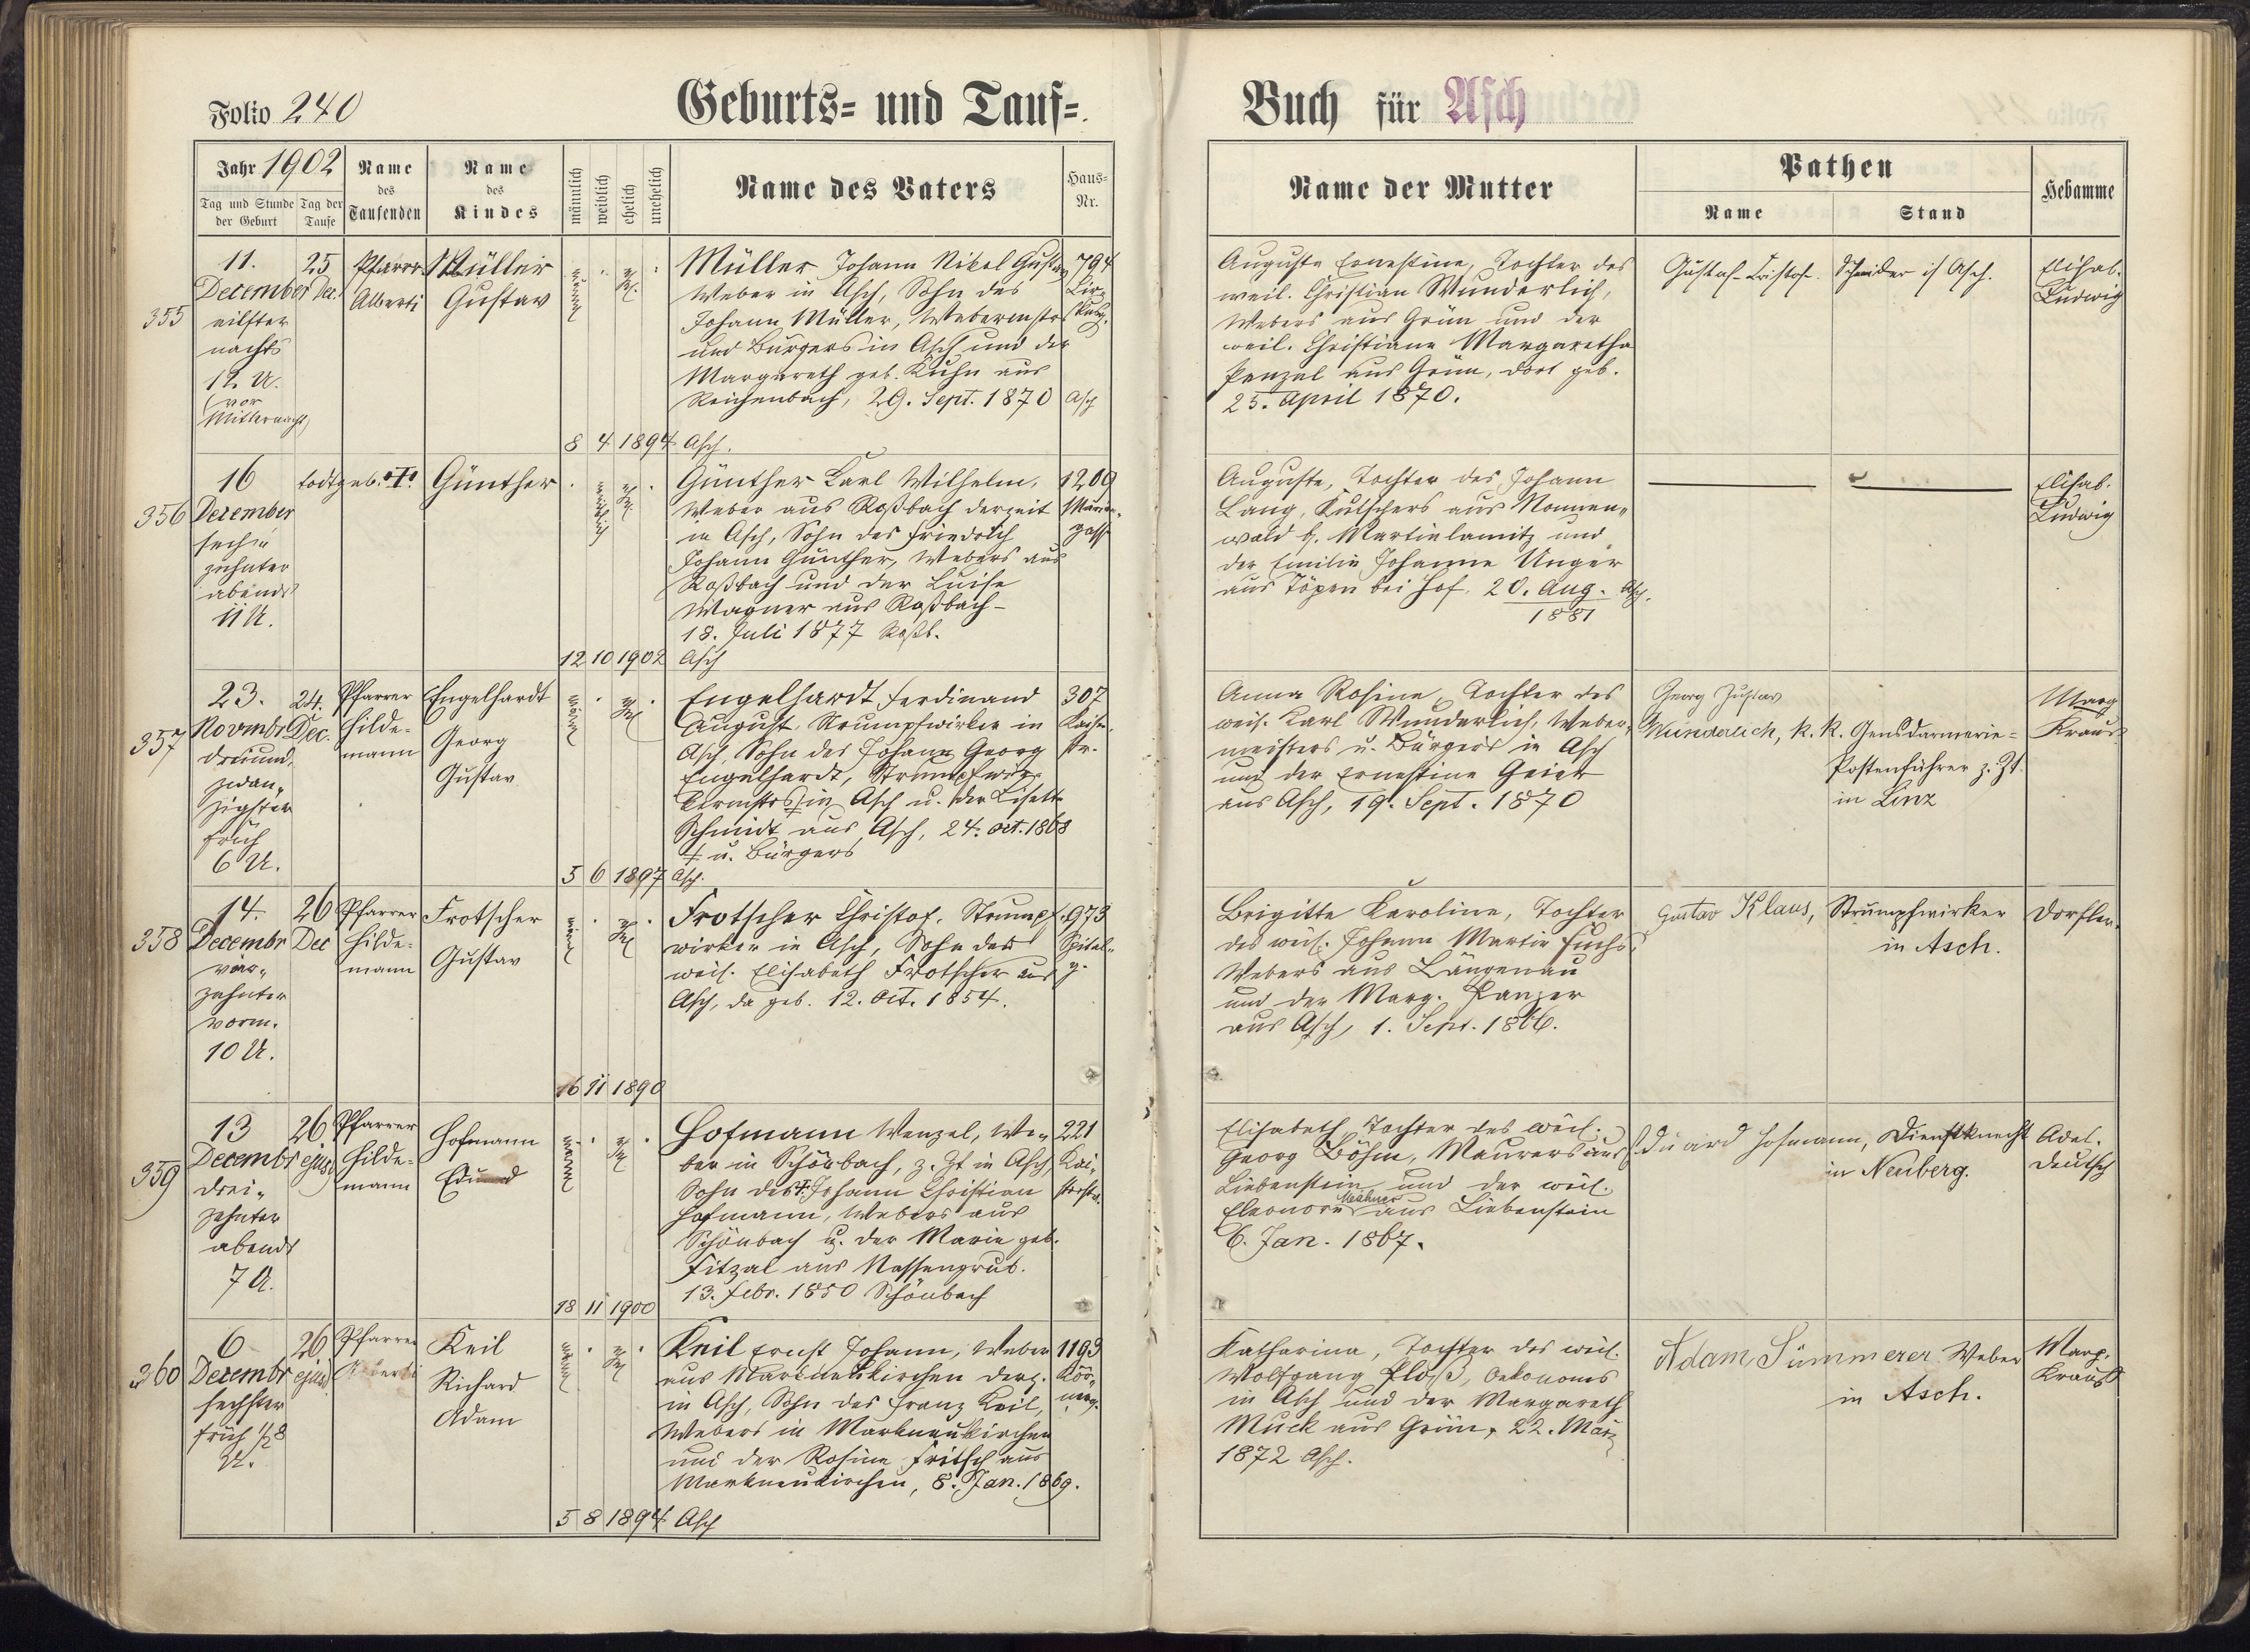 Folio 240
Geburts- und Tauf-
Jahr 1902
Tag und Stunde der Geburt
Tag der Taufe
Name des Taufenden
Name des Kindes
männlich
weiblich
ehelich
unehelich
Name des Vaters
Haus-Nr.
355
11.
December
eilfter
nachts
12 U.
(vor
Mitternacht)
25
Dec.
Pfarrer
Alberti
Müller
Gustav
Müller Johann Nikol Gustav
Weber in Asch, Sohn des
Johann Müller, Webermstrs
und Bürgers in Asch und der
Margareth geb. Kuhn aus
Reichenbach, 29. Sept. 1870 Asch
794
8 4 1894 Asch.
356
16
December
sech-
zehnter
abends
11 U.
todtgeb.
Günther
weiblich
Günther Karl Wilhelm,
Weber aus Roßbach derzeit
in Asch, Sohn des Friedrich
Johann Günther, Webers aus
Roßbach und der Luise
Wagner aus Roßbach-
18. Juli 1877 Roßb.
1200
12 10 1902 Asch
357
23.
Novmbr
dreiund-
zwan-
zigster
früh
6 U.
24.
Dec.
Pfarrer
Hilde-
mann
Engelhardt
Georg
Gustav
Engelhardt Ferdinand
August, Strumpfwirker in
Asch, Sohn des Johann Georg
Engelhardt, Strumpfwir-
kermstrs in Asch u. der Lisette
Schmidt aus Asch, 24. Oct. 1868
‡ u. Bürgers
307
Kaiser-
str.
5 6 1897 Asch.
358
14.
Decembr
vier-
zehnter
vorm.
10 U.
26
Dec
Pfarrer
Hilde-
mann
Frotscher
Gustav
Frotscher Christof, Strumpf-
wirker in Asch, Sohn der
weil. Elisabeth Frotscher aus
Asch, da geb. 12. Oct. 1854.
973
Spital-
g.
16 11 1890
359
13
Decembr
drei-
zehnter
abends
7 U.
26
ejusd.
Pfarrer
Hilde-
mann
Hofmann
Eduard
Hofmann Wenzel, We-
ber in Schönbach, z. Zt in Asch,
Sohn des †. Johann Christian
Hofmann, Webers aus
Schönbach u. der Marie geb.
Fitzal aus Nassengrub.
13. Febr. 1850 Schönbach
221
Kai-
serstr.
18 11 1900
360
6
Dezembr
sechster
früh 1/2 8
U.
26
ejusd.
Pfarrer
Alberti
Keil
Richard
Adam
Keil Ernst Johann, Weber
aus Markneukirchen derz.
in Asch, Sohn des Franz Keil,
Webers in Markneukirchen
und der Rosine Fritsch aus
Markneukirchen, 8. Jan. 1869.
1193
Kör-
nerg.
5 8 1894 Asch
Buch für Asch
Name der Mutter
Pathen
Name
Stand
Hebamme
Auguste Ernestine, Tochter des
weil. Christian Wunderlich,
Webers aus Grün und der
weil. Christiane Margaretha
Penzel aus Grün, dort geb.
25. April 1870.
Schneider in Asch.
Elisab.
Ludwig
Auguste, Tochter des Johann
Lang, Kutschers aus Nonnen-
wald b. Martinlamitz und
der Emilie Johanne Unger
aus Töpen bei Hof, 20. Aug. Asch.
1881
Elisab.
Ludwig
Anna Rosine, Tochter des
weil. Karl Wunderlich, Weber-
meisters u. Bürgers in Asch
und der Ernestine Geier
aus Asch, 19. Sept. 1870
Georg Gustav
Wunderlich, k. k. Gensdarmerie-
Postenführer z. Zt.
in Linz
Marg
Kraus
Brigitte Karoline, Tochter
des weil. Johann Martin Fuchs,
Webers aus Längenau
und der Marg. Panzer
aus Asch, 1. Sept. 1866.
Gustav Klaus, Strumpfwirker
in Asch.
Dorfler.
Elisabeth Tochter des weil.
Georg Böhm, Maurers aus
Liebenstein und der weil.
Eleonore aus Liebenstein
6. Jan. 1867.
Eduard Hofmann, Dienstknecht
in Neuberg.
Adel.
Deutsch
Katharina, Tochter des weil.
Wolfgang Ploß, Oekonoms
in Asch und der Margareth
Muck aus Grün, 22. März
1872 Asch.
Adam Sümmerer Weber
in Asch.
Marg.
Kraus